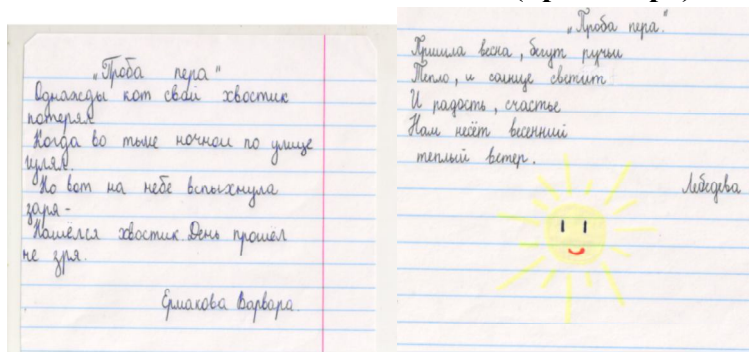 „Проба пера"
Однажды кот свой хвостик
потерял.
Когда во тьме ночной по улице
гулял.
Но вот на небе вспыхнула
заря -
Нашёлся хвостик. День прошёл
не зря.
Ермакова Варвара.
„Проба пера."
Пришла весна, бегут ручьи
Тепло, и солнце светит
И радость, счастье
Нам несёт весенний
теплый ветер.
Лебедева